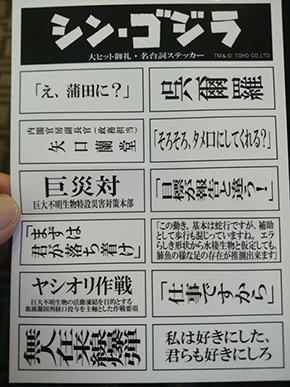 シン・ゴジラ
大ヒット御礼・名台詞ステッカー
TM&© TOHO CO.,LTD
「え、蒲田に？」
呉爾羅
内閣官房副長官（政務担当）
矢口蘭堂
「そろそろ、タメ口にしてくれる？」
巨災対
巨大不明生物特設災害対策本部
「目標が報告と違う！」
「まずは
君が落ち着け」
「この動き、基本は蛇行ですが、補助
として歩行も混じっていますね。エラ
らしき形状から水棲生物と仮定しても、
肺魚の様な足の存在が推測出来ます」
ヤシオリ作戦
巨大不明生物の活動凍結を目的とする
血液凝固剤経口投与を主軸とした作戦要項
「仕事ですから」
無人在来線爆弾
私は好きにした、
君らも好きにしろ